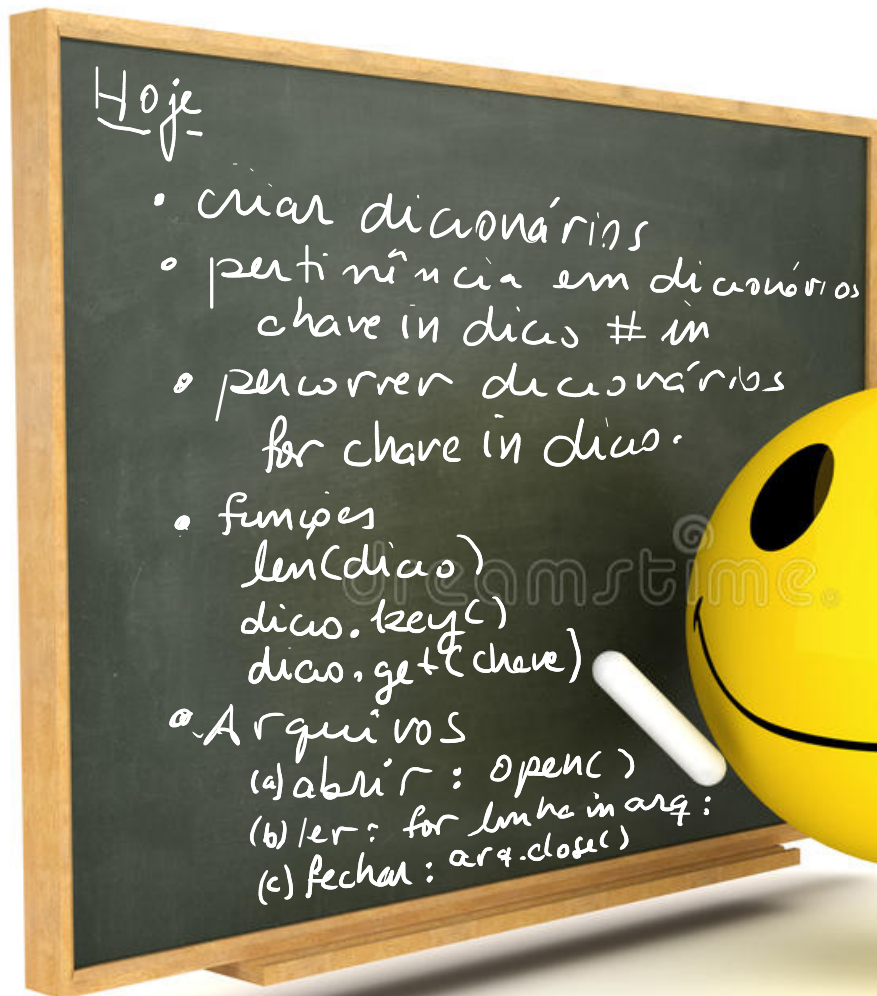 Hoje
• criar dicionários
• pertinência em dicionários
chave in dicio # in
• percorrer dicionários
for chave in dicio.
• funções
len(dicio)
dicio.key()
dicio.get(chave)
• Arquivos
(a) abrir : open()
(b) ler : for linha in arq :
(c) fechar : arq.close()
dreamstime.